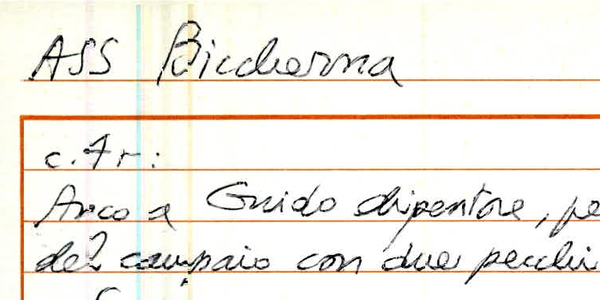 ASS Biccherna
c. 7 r:
Arco a Guido dipentore, pe
del campaio con due pecchi